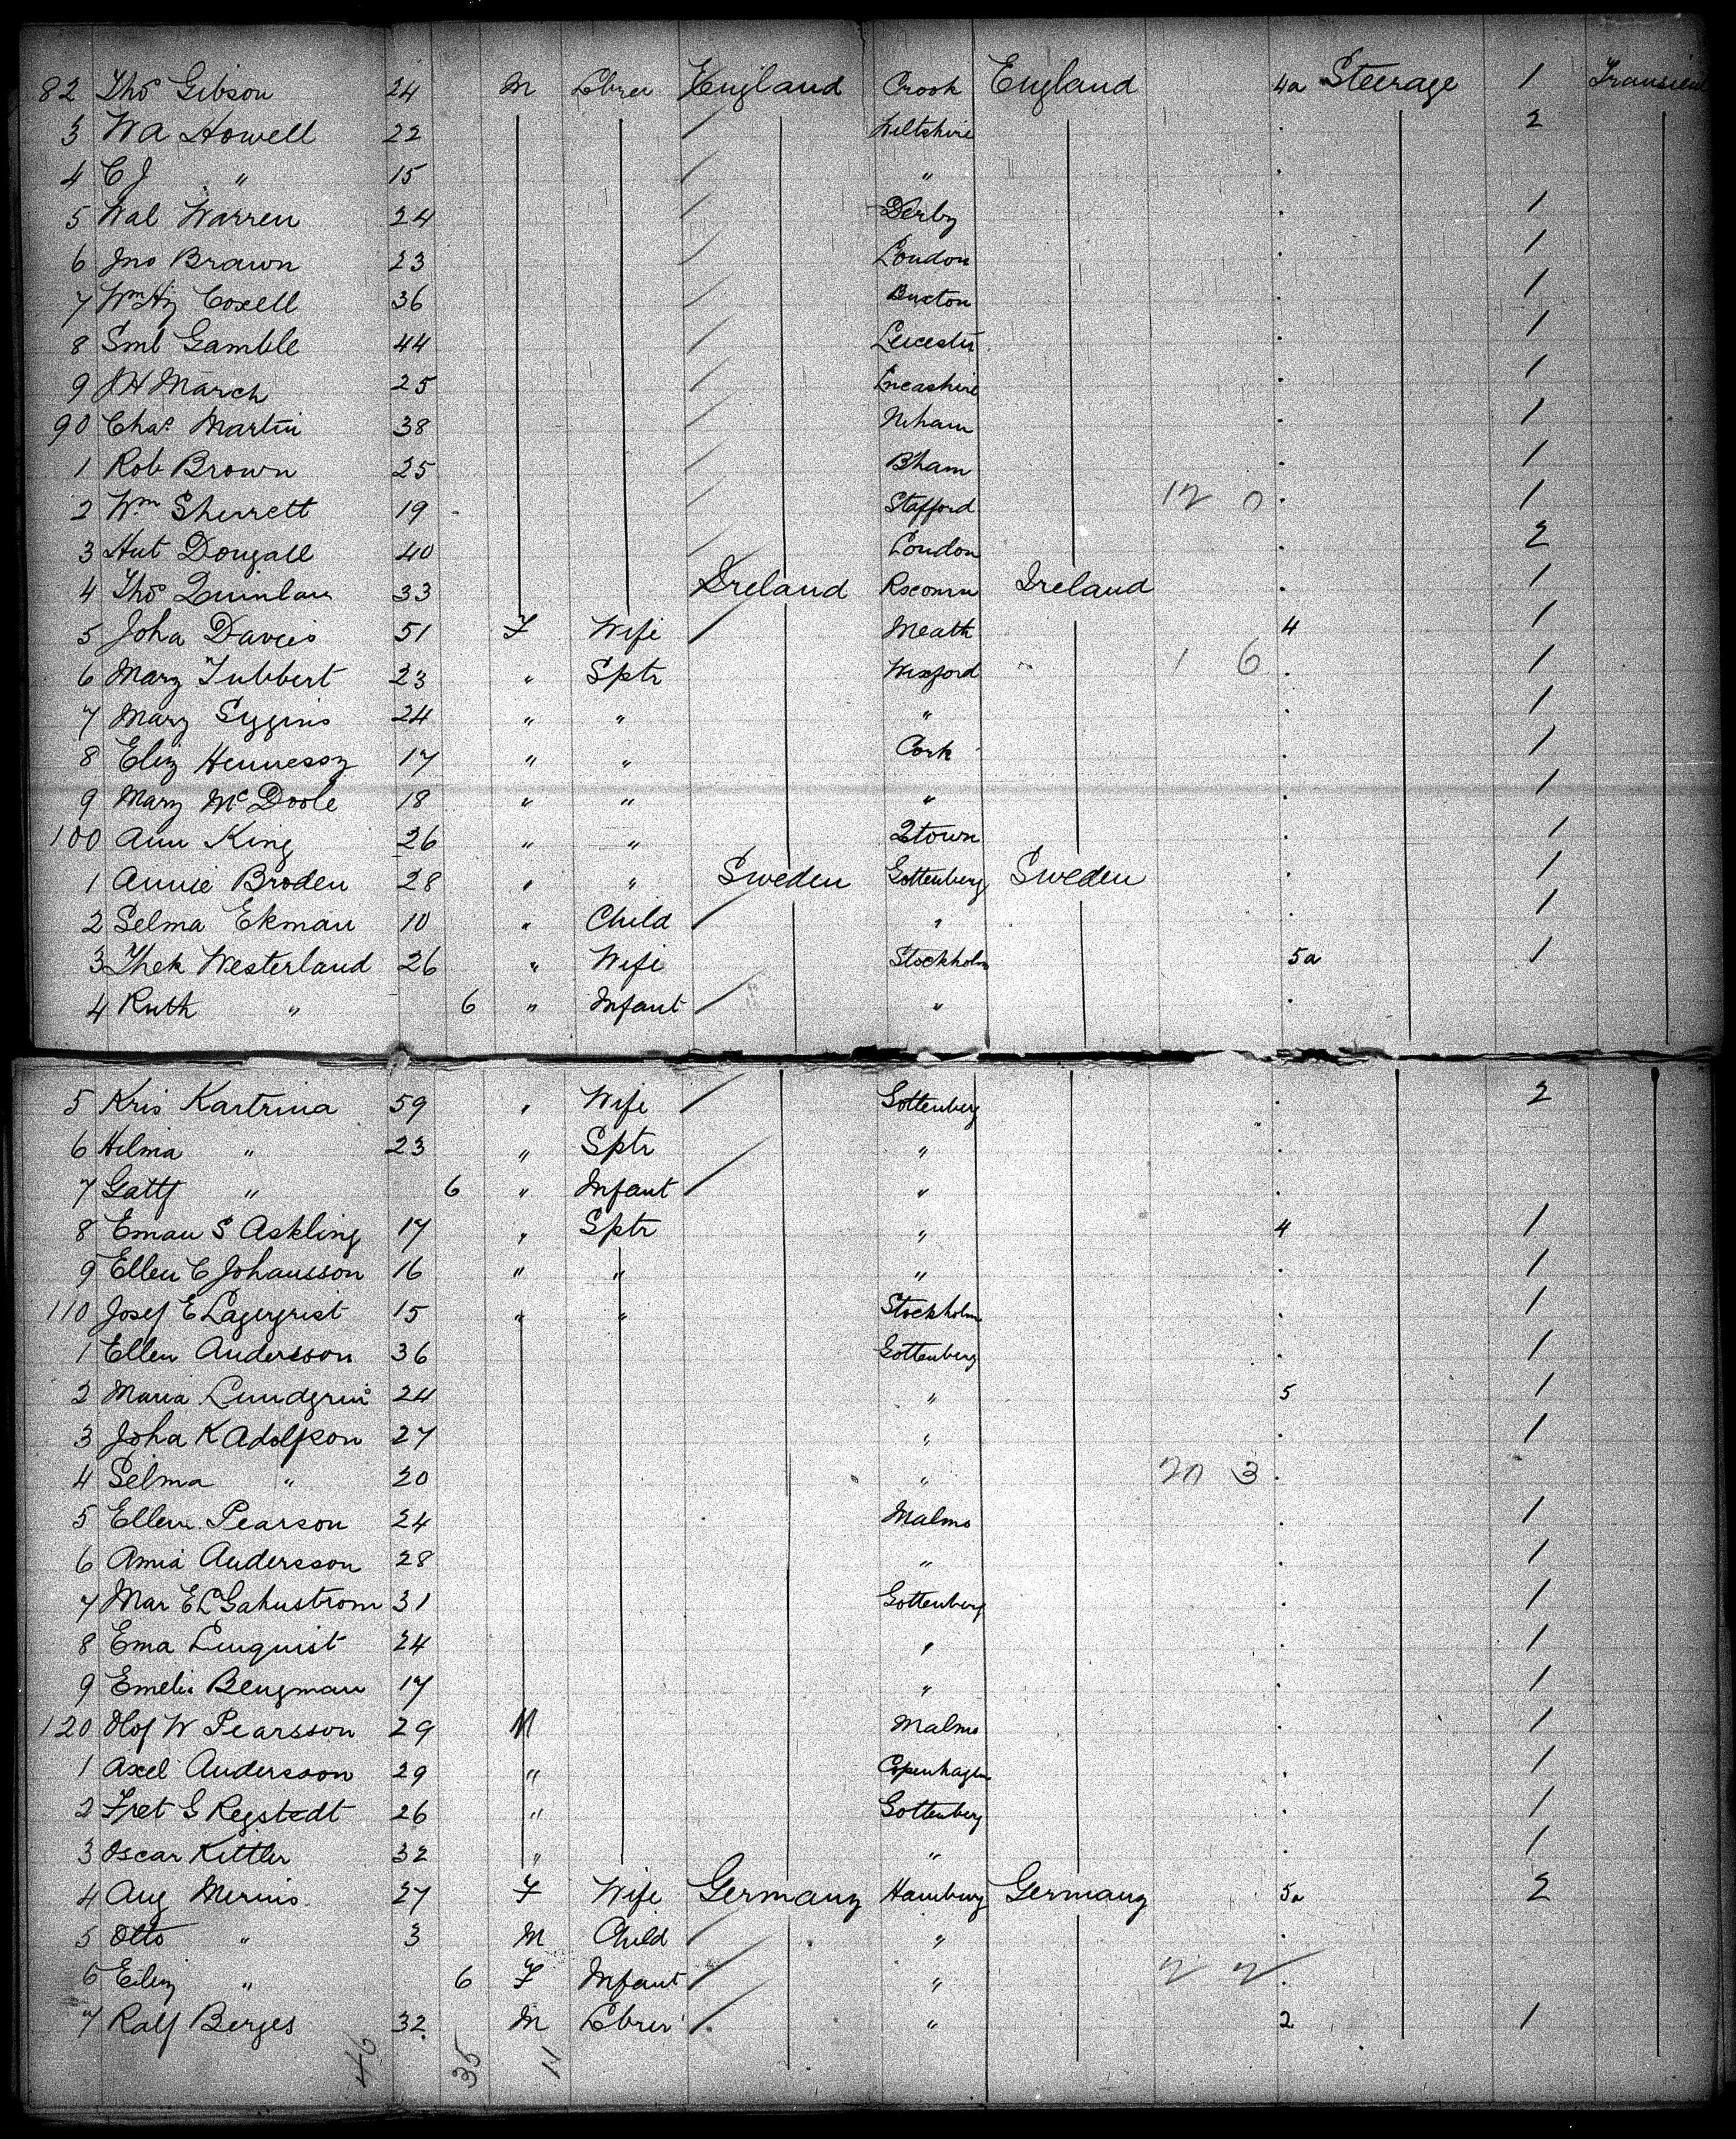 82 Thos Gibson 24 M Lbrer England Crook England 4a Steerage 1 Transient
3 W A Howell 22 Wiltshire 2
4 C J " 15 "
5 Wal Warren 24 Derby 1
6 Jno Brawn 23 London 1
7 Wm Hy Coxell 36 Buxton 1
8 Saml Gamble 44 Leicester 1
9 J H March 25 Lncashire 1
90 Chas Martin 38 Nham 1
1 Rob Brown 25 Bham 1
2 Wm Sherrett 19 Stafford 12 0 1
3 Hut Dougall 40 London 2
4 Thos Quinlan 33 Ireland Rscomn Ireland 1
5 Joha Davies 51 F Wife Meath 4 1
6 Mary Tubbert 23 " Sptr Wexford 1 6 1
7 Mary Syggins 24 " " " 1
8 Eliz Hennessy 17 " " Cork 1
9 Mary McDoole 18 " " " 1
100 Ann King 26 " " Qtown 1
1 Annie Broden 28 " " Sweden Gottenberg Sweden 1
2 Selma Ekman 10 " Child " 1
3 Thek Westerland 26 " Wife Stockholm 5a 1
4 Ruth " 6 " Infant "
5 Kris Kartrina 59 " Wife Gottenberg 2
6 Hilma " 23 " Sptr "
7 " 6 " Infant "
8 Eman S Askling 17 " Sptr " 4 1
9 Ellen C Johansson 16 " " " 1
110 Josef E Lagerqrist 15 " " Stockholm 1
1 Ellen Andersson 36 Gottenberg 1
2 Maria 24 " 5 1
3 Joha K Adolfson 27 " 1
4 Selma " 20 " 20 3
5 Ellen Pearson 24 Malmo 1
6 Andersson 28 " 1
7 Mar E L Gahustrom 31 Gottenberg 1
8 Ema Lenquist 24 " 1
9 Emelie Bengman 17 " 1
120 Olof W Pearsson 29 M Malmo 1
1 Axel Andersson 29 " Copenhagen 1
2 Fret G Regstedt 26 " Gottenberg 1
3 Oscar Kettler 32 " " 1
4 Aug 27 F Wife Germany Hamburg Germany 5a 2
5 Otto " 3 M Child "
6 " 6 F Infant " 2 2
7 Ralf Berges 32 M Lbrer " 2 1
46 35 11